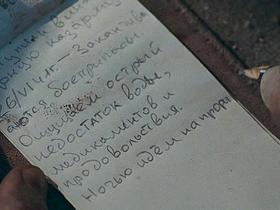 казарму
6/VI 41г.- Заканчива
ются боеприпасы.
Ощущаем острый
недостаток воды,
медикаментов и
продовольствия.
Ночью идём на проры